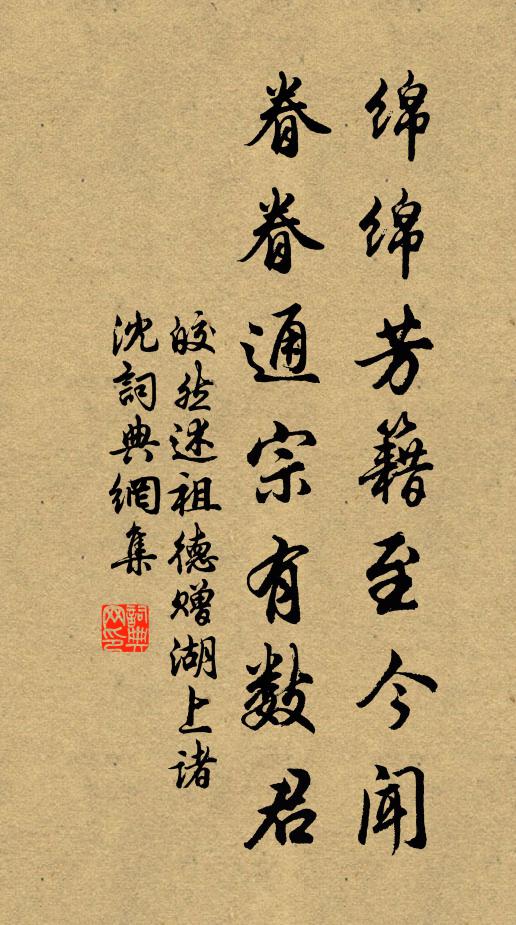 绵绵芳籍至今闻
眷眷通宗有数君
皎然述祖德赠湖上诸
沈詞典網集
詞典
网印